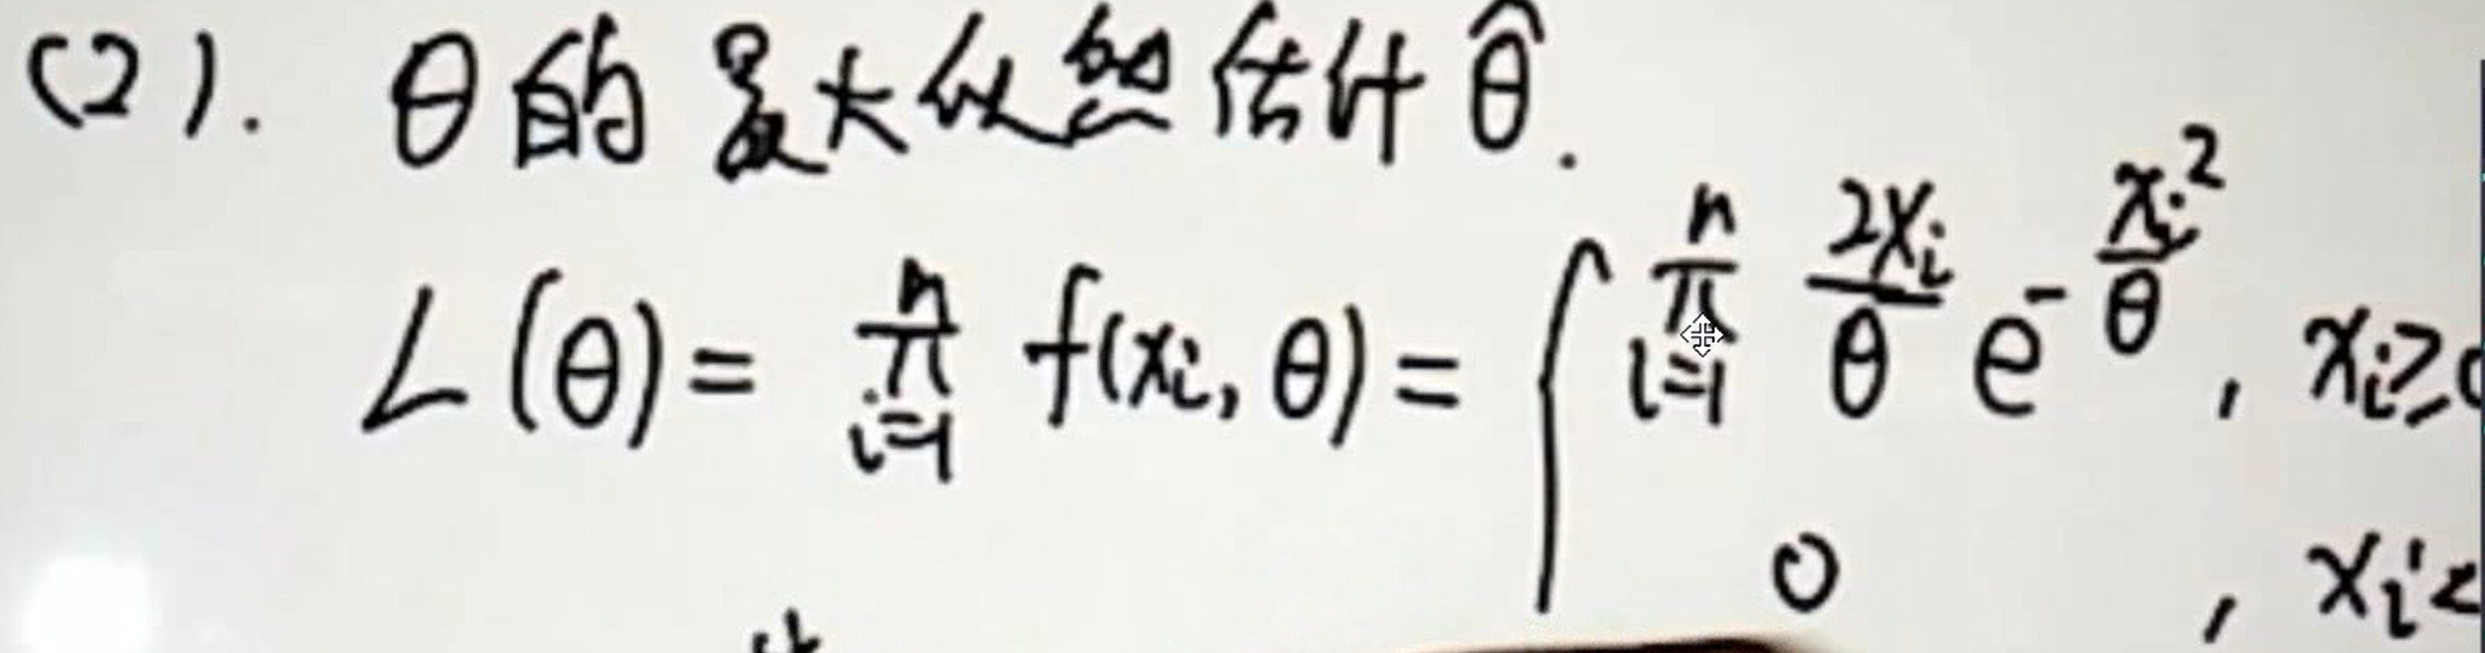 (2). θ的最大似然估计 θ̂.
L(θ) = ∏_{i=1}^{n} f(xi, θ) = { ∏_{i=1}^{n} 2xi/θ e^{-xi²/θ}, xi≥0
0, xi<